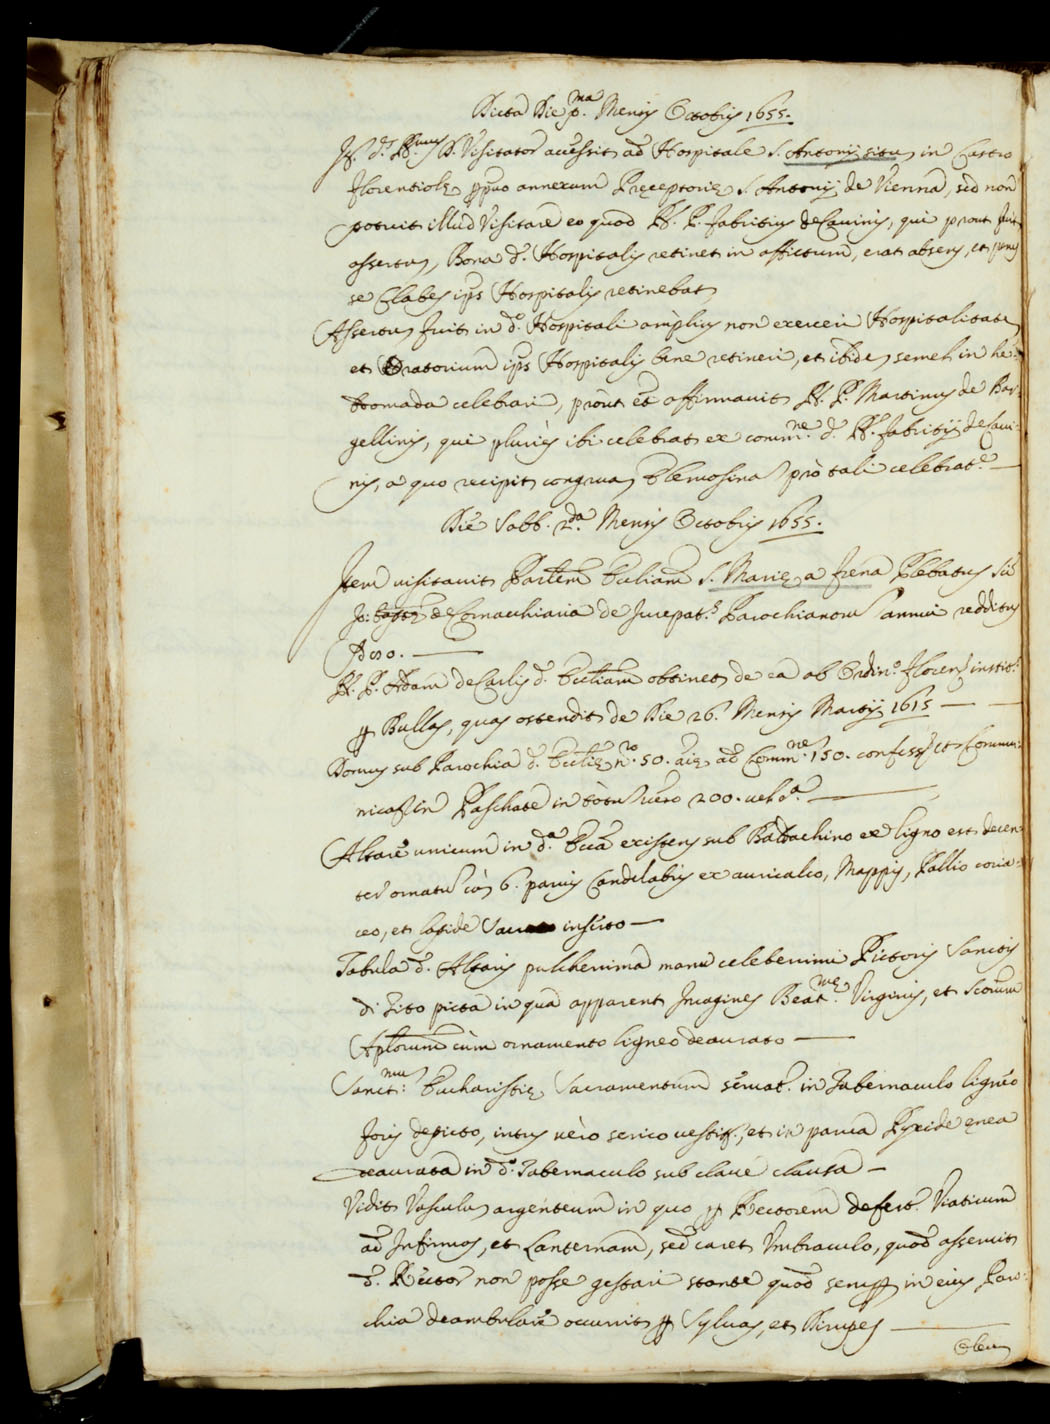 Dicta Die p.ma Mensis Octobris 1655.
Ill. d. R.mus D. Visitator accessit ad Hospitale S. Antonij situ in Castro
Florentiolę ppuo annexum Pręceptorię S. Antonij de Vienna, sed non
potuit illud Visitare eo quod R. P. Fabritius de Cavinis, qui prout fuit
assertu, Bona d. Hospitalis retinet in affictum, erat absens, et penes
se Claves ips Hospitalis retinebat
Assertu fuit in d. Hospitali amplius non exerceri Hospitalitate
et Oratorium ips Hospitalis bene retineri, et ibide semel in he-
bdomada celebrari, prout et affirmavit R. P. Martinus de Bar-
gellinis, qui pluries ibi celebrat ex comm.ne d. R. Fabritij de Cavi-
nis, a quo recipit congrua Elemosina pro tali celebrat.e
Die Sabb. 2.da Mensis Octobris 1655.
Item visitavit Eccliam S. Marię a Frena Plebatus S.
Jo: de Cornacchiaia de Jurepat.s Parochianoru annui redditus
R. P. Adam de Carlis d. Eccliam obtinet de ea ab Ordin.o Floren. instit.
p Bullas, quas ostendit de Die 26. Mensis Martij 1615
Domus sub Parochia d. Ecclię n.ro 50. aię ad Comm.ne 150. confess. et Commu-
nicas in Paschate in totu vero 200. vel c.a
Altare unicum in d.a Ecca existens sub Baldachino ex ligno est decen-
ter ornatu cu 6. parvis Candelabris ex auricalco, Mappis, Pallio coria-
ceo, et lapide Sacro inserto
Tabula d. Altaris pulcherrima manu celeberrimi Pictoris Sanctis
di Tito picta in qua apparent Imagines Beat.mę Virginis, et Scorum
Aplorum cum ornamento ligneo deaurato
Sanct.mu Eucharistię Sacramentum servat. in Tabernaculo ligneo
foris depicto, intus vero serico vestit., et in parva Pyxide ęnea
deaurata in d. Tabernaculo sub clave clausa
Vidit Vasculu argenteum in quo p Rectorem defert. Viaticum
ad Infirmos, et Lanternam, sed caret Umbraculo, quod asseruit
d. Rector non posse gestari stante quod semp in eius Paro-
chia deambulare occurrit p Sylvas, et Rirupes
Oleu